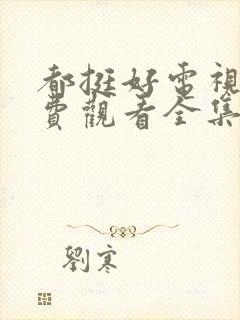 都挺好電視
費觀看全集
劉寒